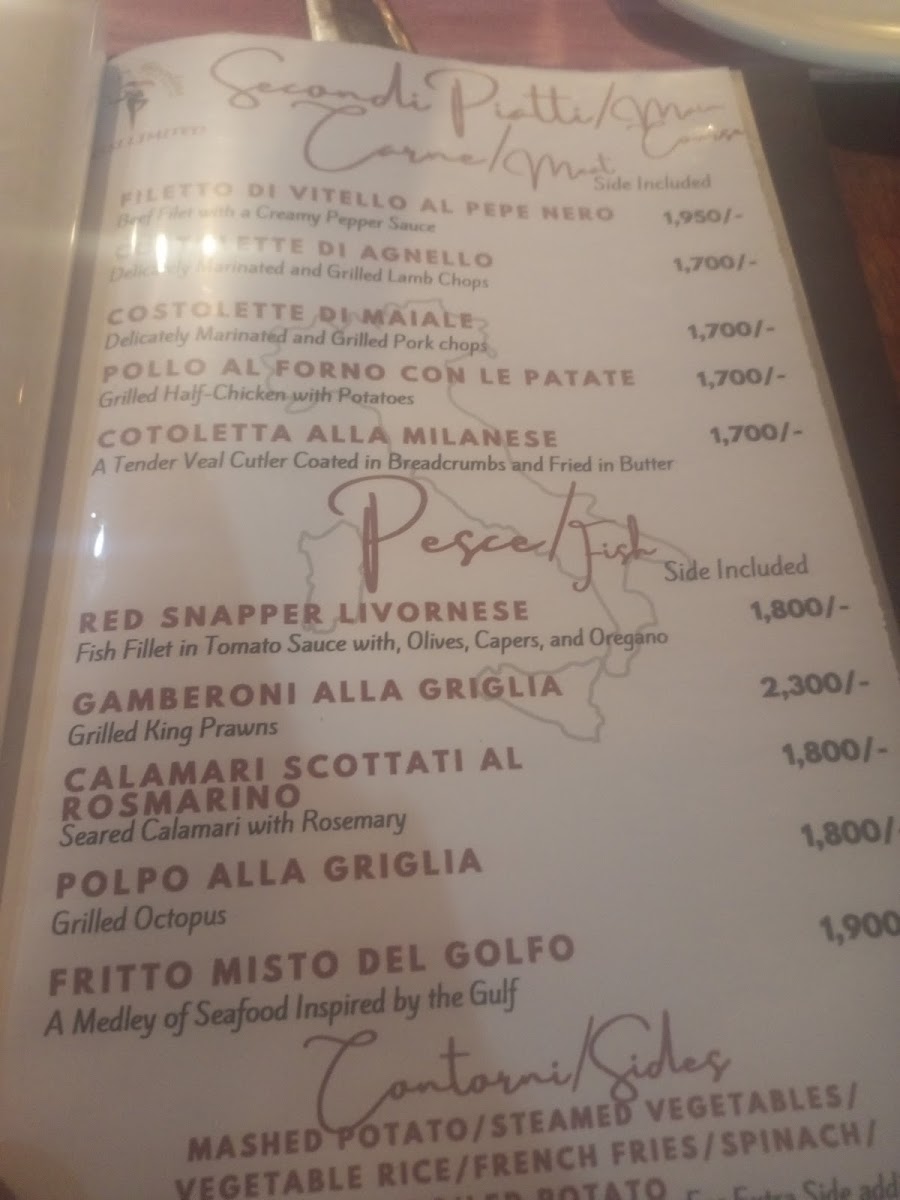 LIMITED
Secondi Piatti/Main
Course
Carne/Meat
Side Included
FILETTO DI VITELLO AL PEPE NERO 1,950/-
Beef Filet with a Creamy Pepper Sauce
ETTE DI AGNELLO 1,700/-
Delicately Marinated and Grilled Lamb Chops
COSTOLETTE DI MAIALE 1,700/-
Delicately Marinated and Grilled Pork chops
POLLO AL FORNO CON LE PATATE 1,700/-
Grilled Half-Chicken with Potatoes
COTOLETTA ALLA MILANESE 1,700/-
A Tender Veal Cutler Coated in Breadcrumbs and Fried in Butter
Pesce/Fish
Side Included
RED SNAPPER LIVORNESE 1,800/-
Fish Fillet in Tomato Sauce with, Olives, Capers, and Oregano
GAMBERONI ALLA GRIGLIA 2,300/-
Grilled King Prawns
CALAMARI SCOTTATI AL 1,800/-
ROSMARINO
Seared Calamari with Rosemary
POLPO ALLA GRIGLIA 1,800/-
Grilled Octopus
FRITTO MISTO DEL GOLFO 1,900
A Medley of Seafood Inspired by the Gulf
Contorni/Sides
MASHED POTATO/STEAMED VEGETABLES/
VEGETABLE RICE/FRENCH FRIES/SPINACH/
POTATO Side add